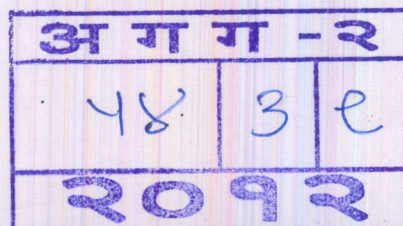 अ ग ग - २
५४ ३ ९
२०१२